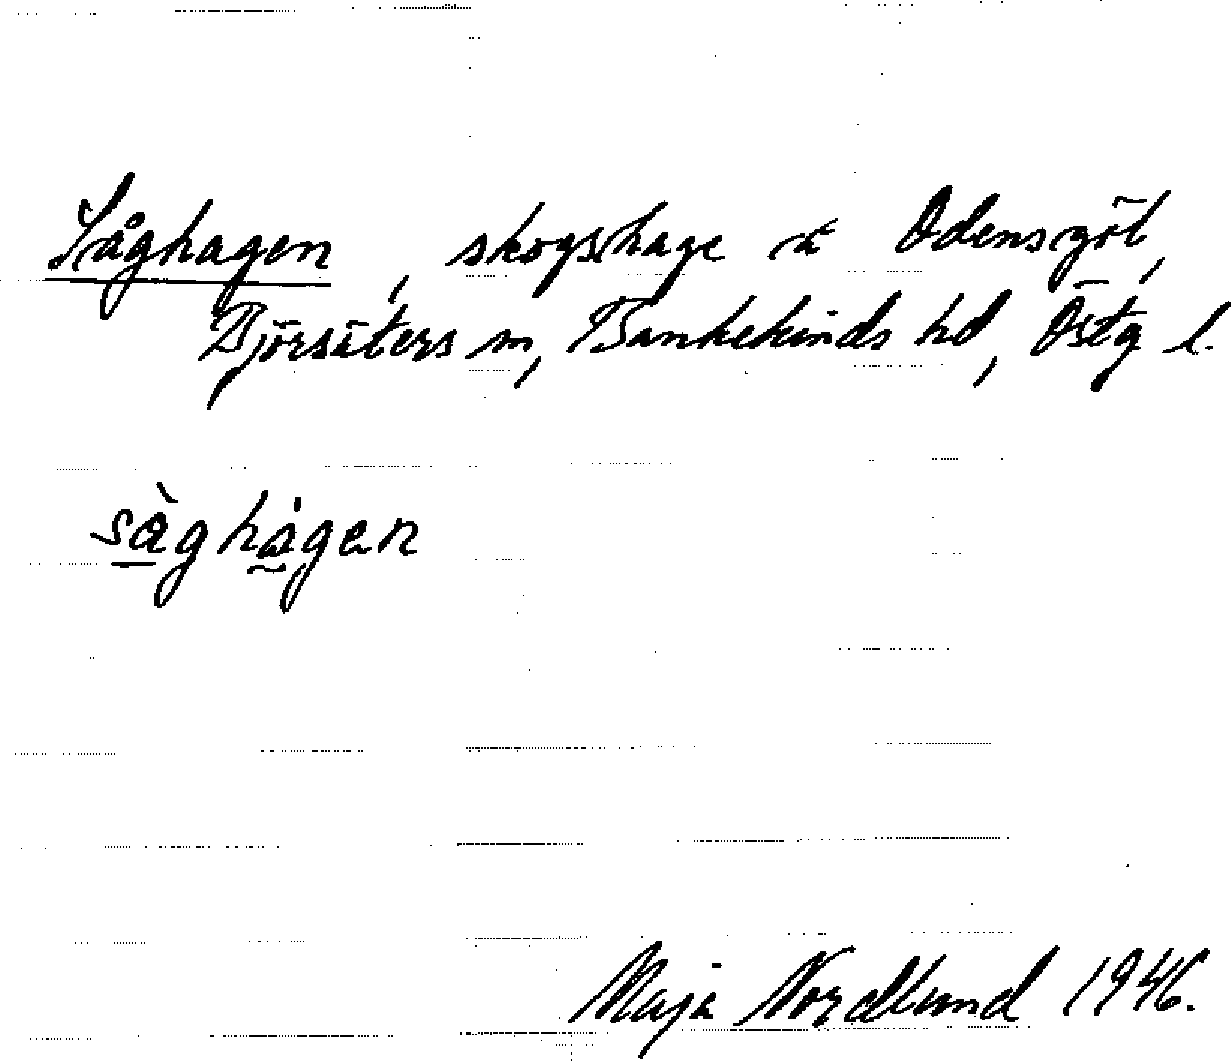 Såghagen, skogshage å Odensgöl,
Björsäters sn, Bankekinds hd, Östg l.
såghagen
Maja Nordlund 1946.